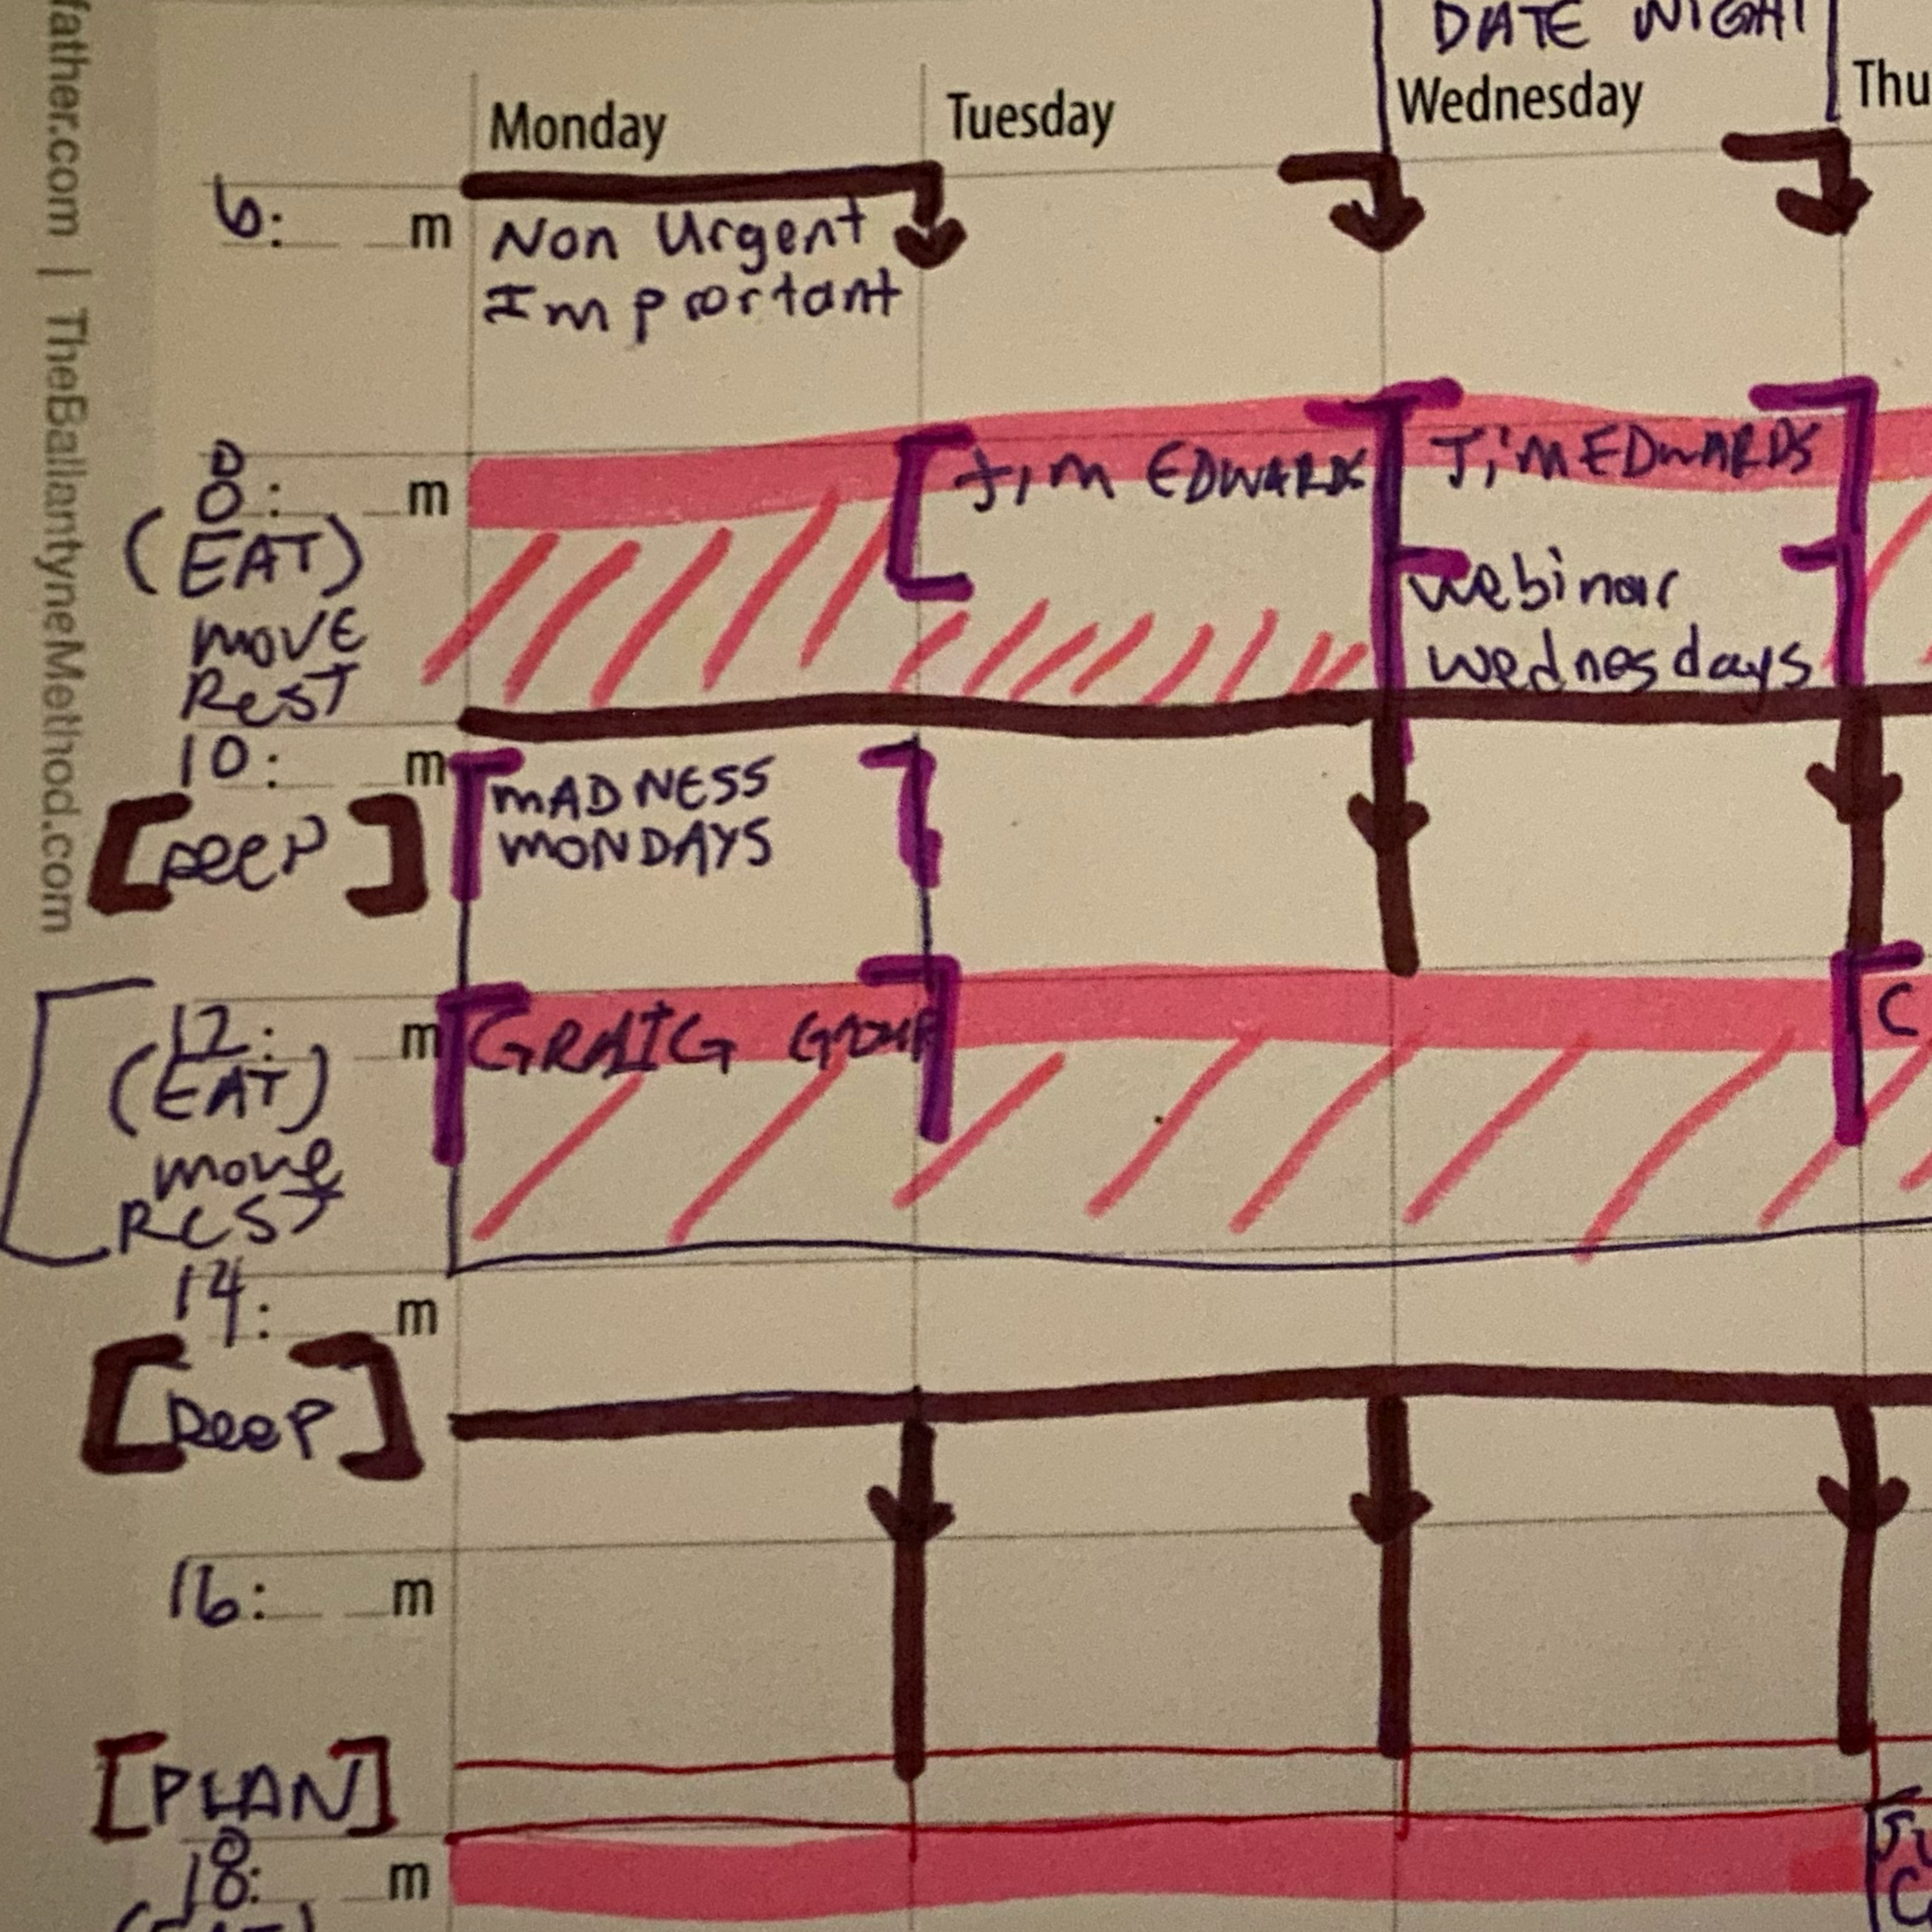 father.com | TheBallantyneMethod.com
DATE NIGHT
Monday
Tuesday
Wednesday
Thu
6: m
Non Urgent
Important
8: m
(EAT)
move
Rest
JIM EDWARDS
JiM EDWARDS
webinar
wednesdays
10: m
[DEEP]
MADNESS
MONDAYS
12: m
(EAT)
move
REST
GRAIG GROUP
C
14: m
[DeeP]
16: m
[PLAN]
18: m
C